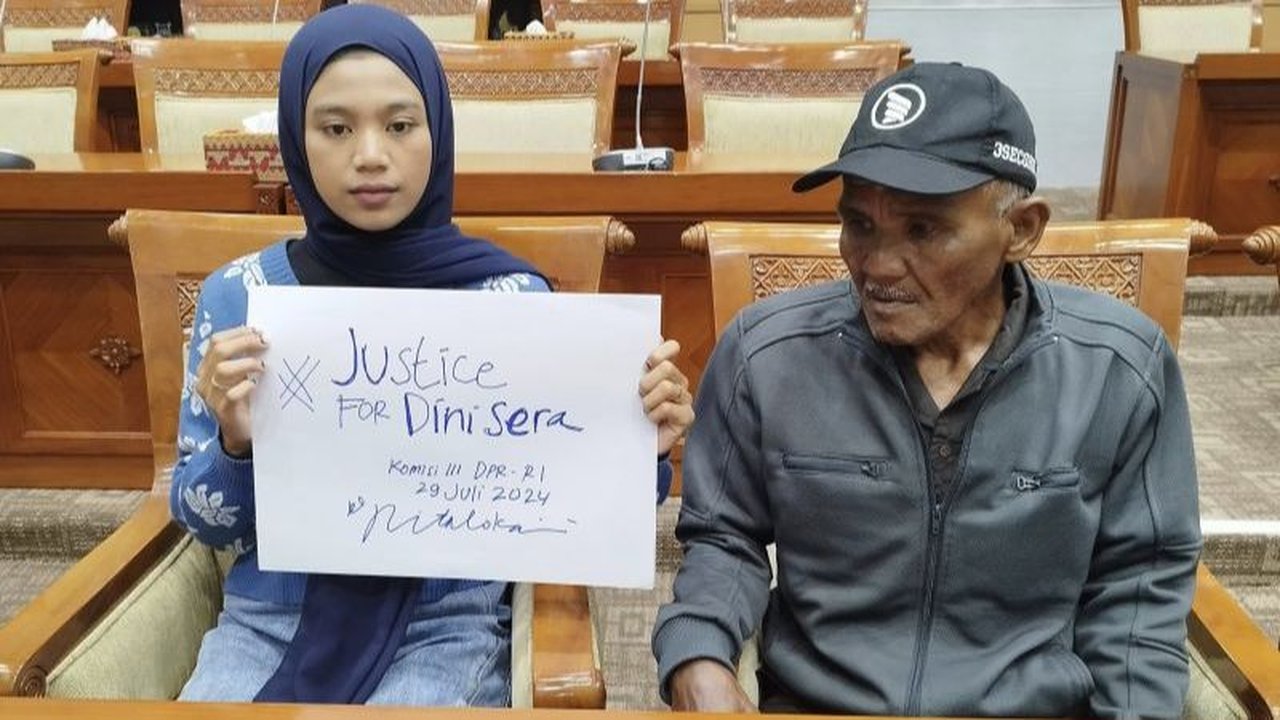 # Justice
FOR Dini sera
Komisi III DPR-RI
29 Juli 2024
3SECOND